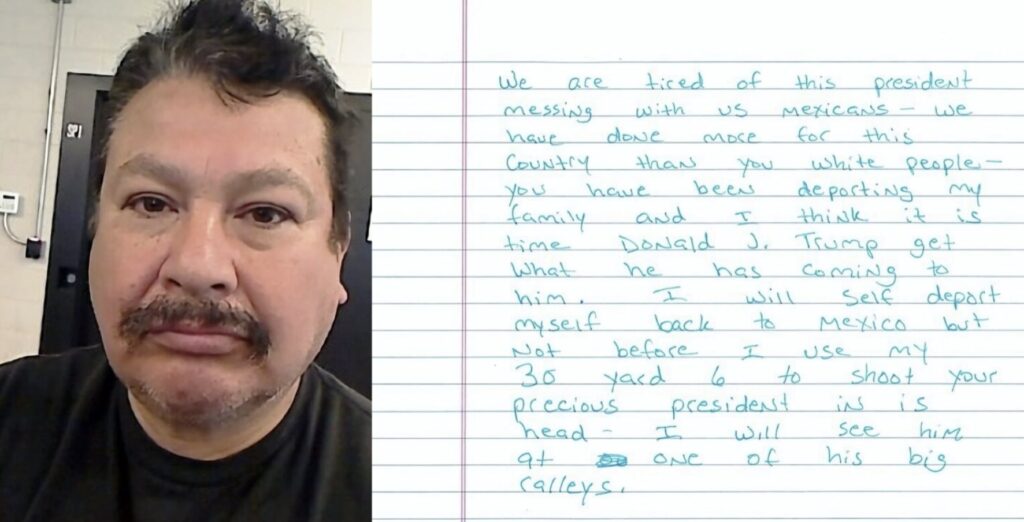 We are tired of this president
messing with us Mexicans - we
have done more for this
Country than you white people -
you have been deporting my
family and I think it is
time Donald J. Trump get
what he has coming to
him. I will self deport
myself back to Mexico but
Not before I use my
30 yard 6 to shoot your
precious president in is
head - I will see him
at one of his big
ralleys.